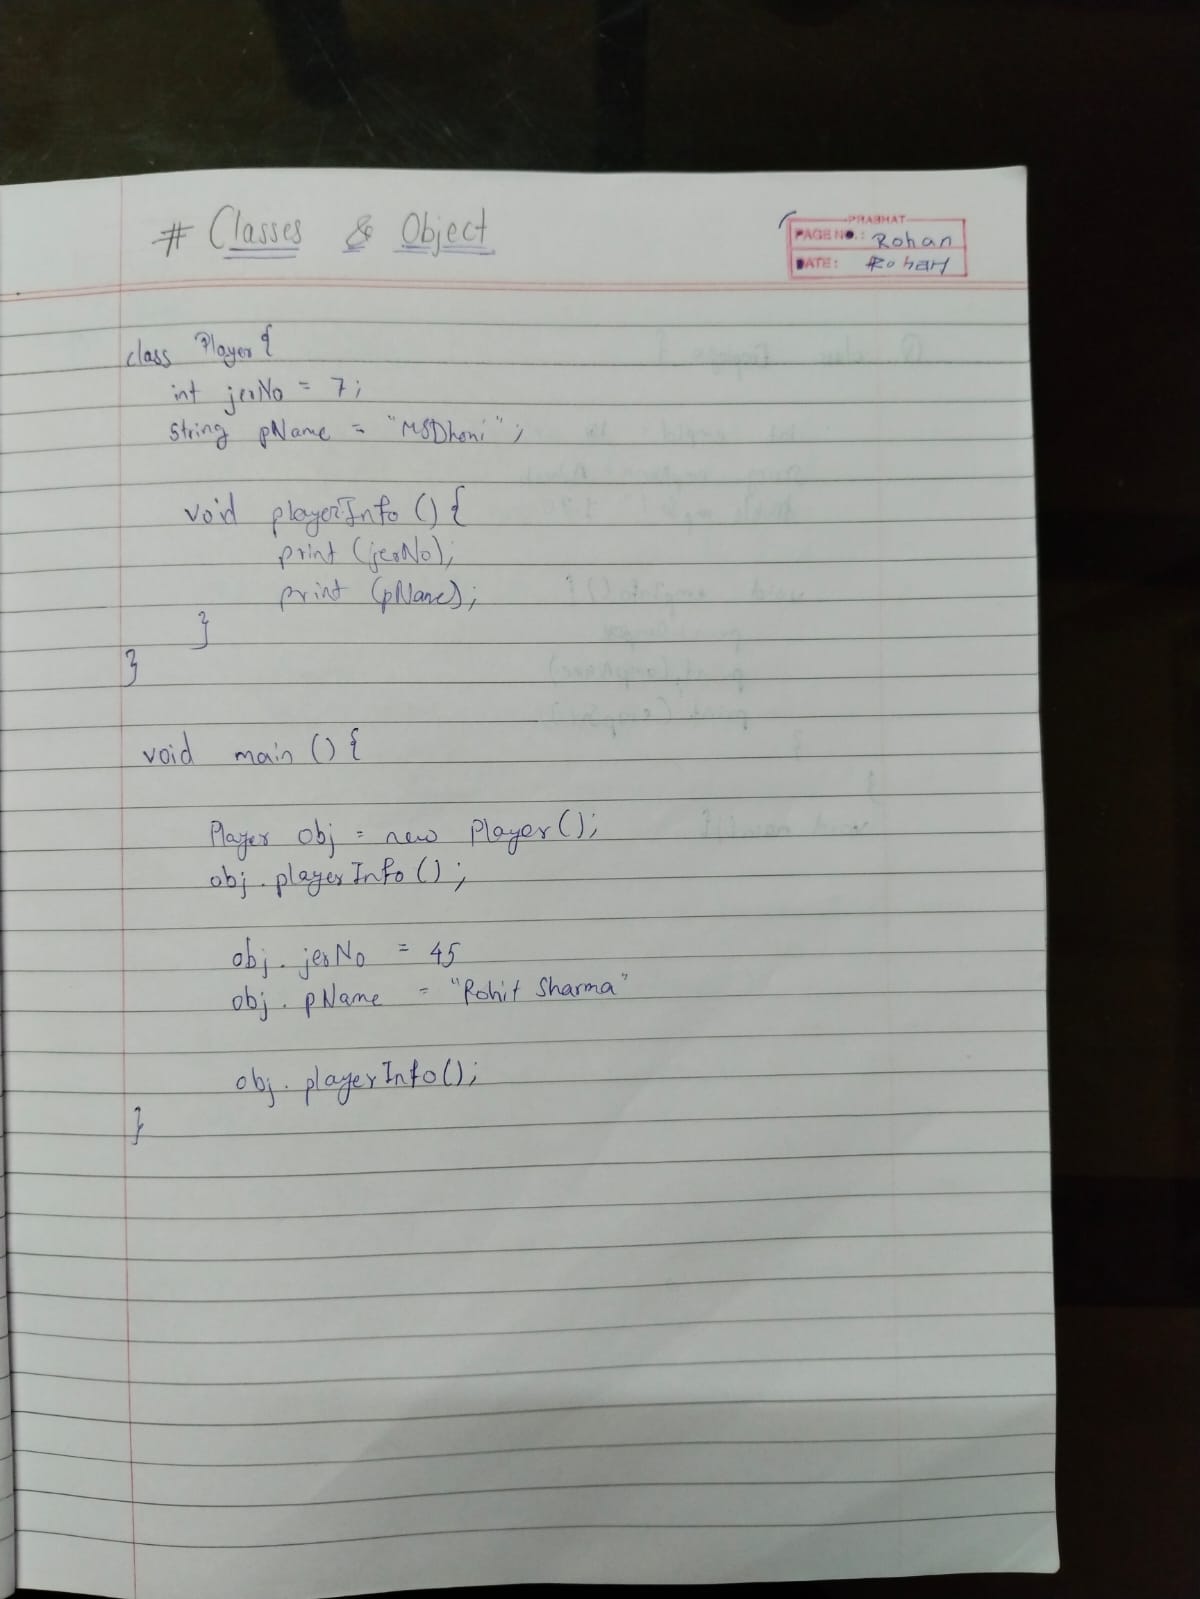 # Classes & Object
PRABHAT
PAGE NO.: Rohan
DATE: Rohan
class Player {
int jerNo = 7;
String pName = "MSDhoni";
void playerInfo () {
print (jerNo);
print (pName);
}
}
void main () {
Player obj = new Player();
obj.playerInfo ();
obj.jerNo = 45
obj.pName = "Rohit Sharma"
obj.playerInfo();
}